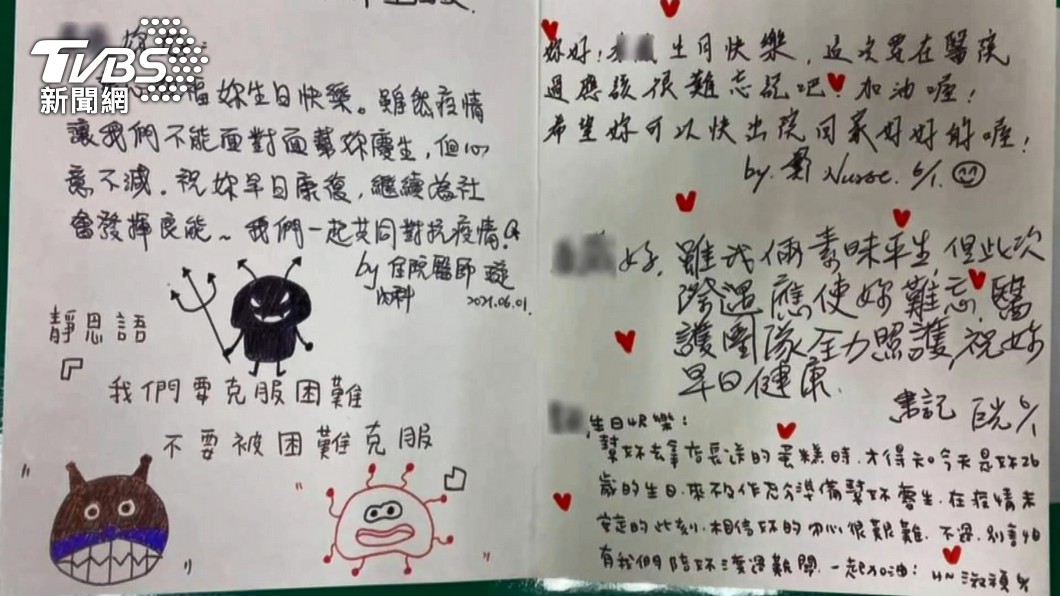 TVBS
新聞網
福妳生日快樂。雖然疫情
讓我們不能面對面幫妳慶生,但心
意不減。祝妳早日康復,繼續為社
會發揮良能~我們一起共同對抗疫情!
by 住院醫師 璇
內科 2021.06.01.
靜思語
『
我們要克服困難
不要被困難克服
』
妳好! 生日快樂,這次要在醫院
過應該很難忘記吧!加油喔!
希望妳可以快出院回家好好的喔!
by. Nurse. 6/1.
好,雖我倆素昧平生,但此次
際遇應使妳難忘,醫
護團隊全力照護,祝妳
早日健康.
書記 6/1
生日快樂:
幫妳去拿店長送的蛋糕時,才得知今天是妳26
歲的生日.來不及作充分準備幫妳慶生.在疫情未
安定的此刻.相信妳的內心很艱難.不過,別害怕
有我們陪妳渡過難關.一起加油! HN 淑禎